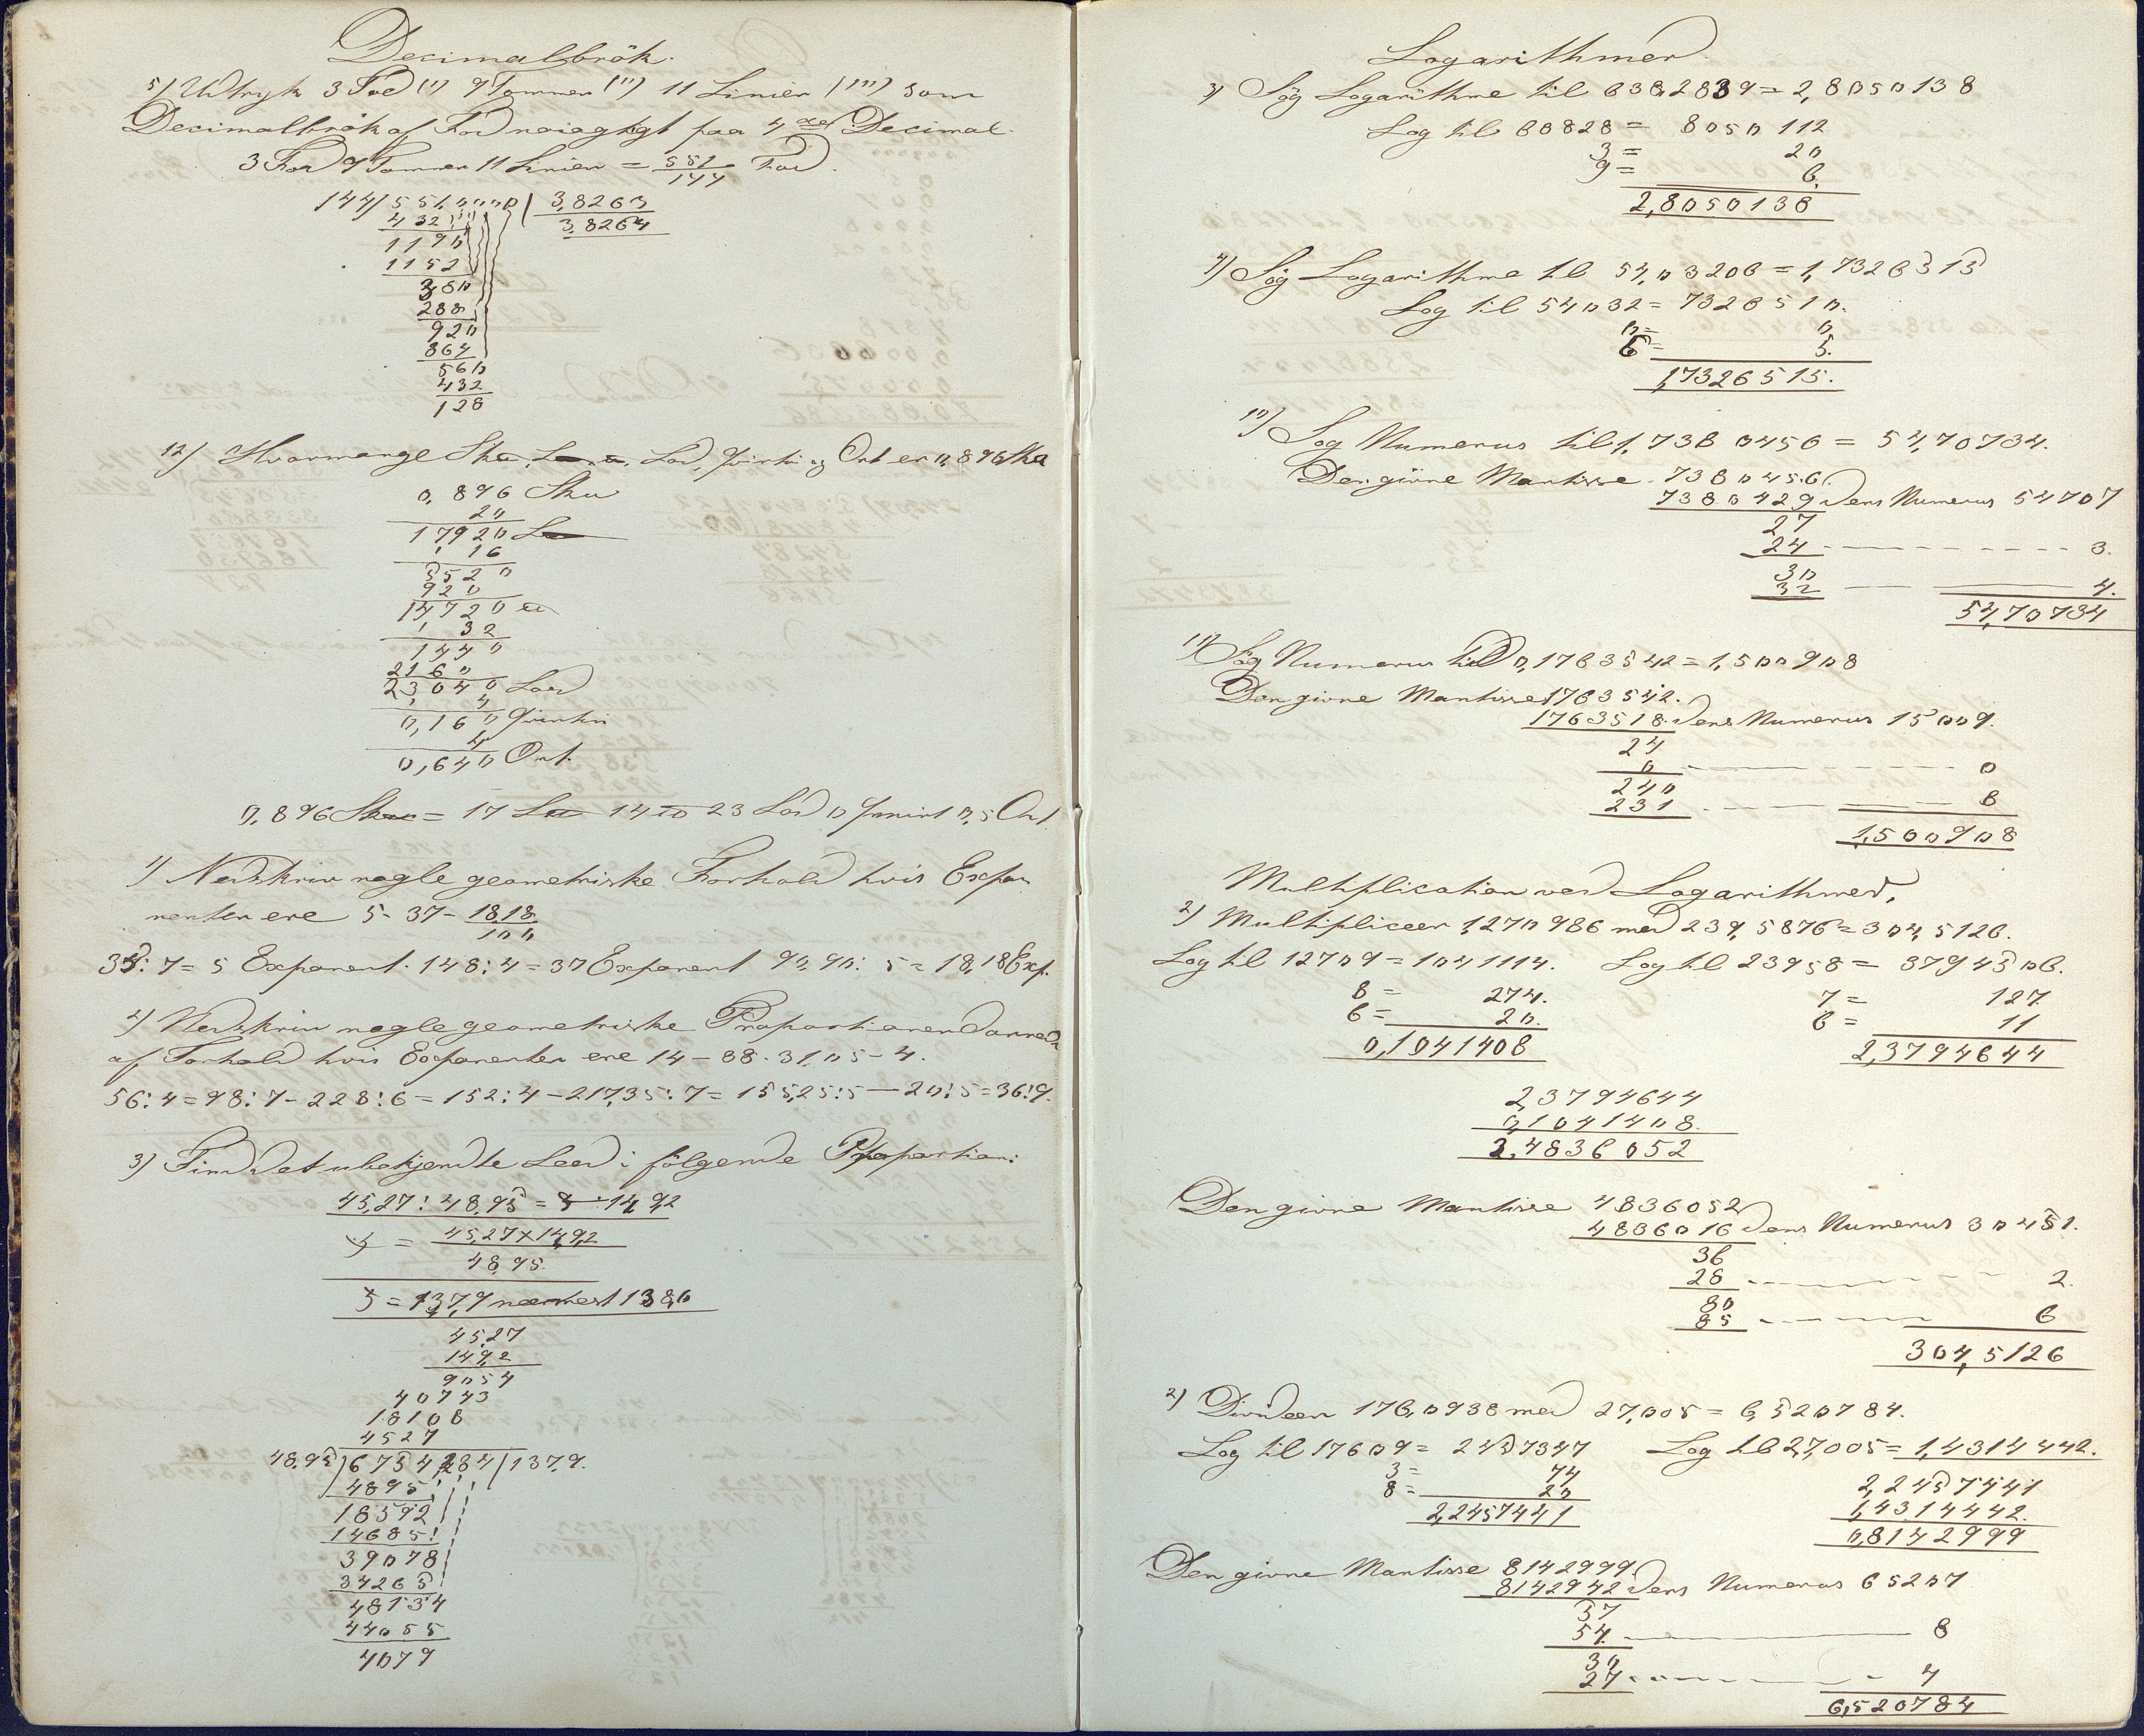 Decimalbrök.
5) Udtryk 3 Fod (') 9 Tommer ('') 11 Linier (''') som
Decimalbrök af Fod nøiagtigt paa 4de Decimal.
3 Fod 9 Tommer 11 Linier = 551/144 Fod.
144/551,0000/3,8263
432 3,8264
1190
1152
380
288
920
864
560
432
128
12) Hvormange Lod, Qvintin og Ort er 0,896
0,896
20
17920
16
3520
920
14720
32
1440
2160
23040 Lod
4
0,160 Qvintin
4
0,640 Ort.
0,896 = 17 14 23 Lod 0 Qvint 0,5 Ort
1) Nedskriv nogle geometriske Forhold hvis Expo-
nenter ere 5 - 37 - 18,18/100
35:7 = 5 Exponent. 148:4 = 37 Exponent 90,90:5 = 18,18 Exp.
2) Nedskriv nogle geometriske Proportioner dannede
af Forhold hvis Exponenter ere 14 - 38 - 31,05 - 4.
56:4 = 98:7 - 228:6 = 152:4 - 217,35:7 = 155,25:5 - 20:5 = 36:9.
3) Find det ubekjendte Led i følgende Proportion:
45,27 : 48,95 = x : 14,92
x = 45,27 × 14,92
48,95
= 13,79 nærmest 13,80
45,27
14,92
9054
40743
18108
4527
48,95/6754284/13,79.
4895
18592
14685
39078
34265
48134
44055
4079
Logarithmer
3) Søg Logarithme til 638,2839 = 2,8050138
Log til 63828 = 8050112
3 = 20
9 = 6
2,8050138
4) Søg Logarithme til 54,03206 = 1,7326515
Log til 54032 = 7326510.
0 = 0
6 = 5.
1,7326515.
10) Søg Numerus til 1,7380456 = 54,70734.
Den givne Mantisse 7380456.
7380429 dens Numerus 54707
27
24 - - - - - - - - 3.
30
32 4.
54,70734
11) Søg Numerus til 0,1763542 = 1,500908
Den givne Mantisse 1763542.
1763518 dens Numerus 15009.
24
0 - - - - - - - - 0
240
231 - - - 8
1,500908
Multiplication ved Logarithmer.
2) Multipliceer 1,270986 med 239,5876 = 304,5126.
Log til 12709 = 1041114. Log til 23958 = 3794506.
8 = 274. 7 = 127.
6 = 20. 6 = 11
0,1041408 2,3794644
2,3794644
0,1041408.
2,4836052
Den givne Mantisse 4836052
4836016 dens Numerus 30451.
36
28 - - - - - - - - 2.
80
85 - - - - - 6
304,5126
2) Divideer 176,0938 med 27,005 = 6,520784.
Log til 17609 = 2457347 Log til 27,005 = 1,4314442.
3 = 74 2,2457441
8 = 20 1,4314442.
2,2457441 0,8142999
Den givne Mantisse 8142999.
8142942 dens Numerus 65207
57
54. 8
30
27 - - - - - - 4
6,520784